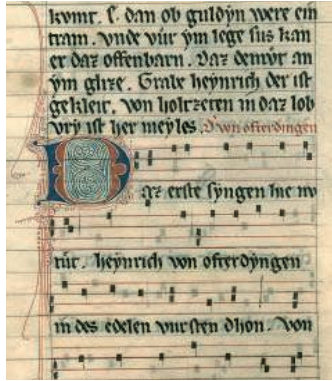 kvmt. ſ. dan ob guldyn were ein
tram. vnde vůr ẏm lege ſus kan
er daz offenbarn. Daz denrẏr an
ẏm glize. Grabe heẏnrich der iſt
gekleit, von holtzeren in daz lob
vrẏ iſt her meẏles. D von ofterdingen
Daz erſte ſẏngen hie nv
tůt. heẏnrich von ofterdẏngen
in des edelen vurſten dhon. Von